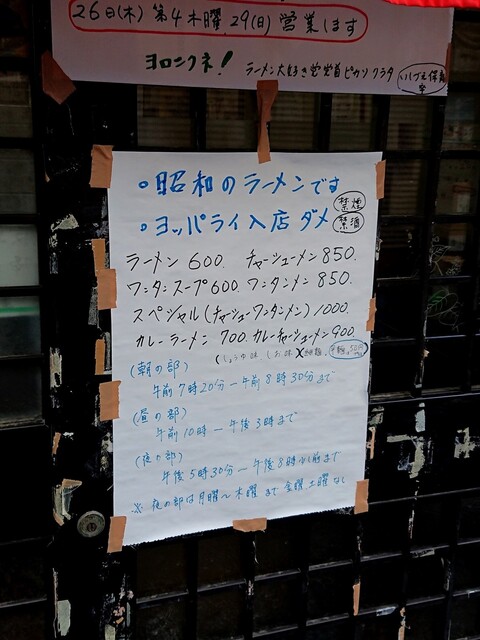 26日(木) 第4木曜、29(日) 営業します
ヨロニクネ! ラーメン大好き
・昭和のラーメンです 禁煙
・ヨッパライ入店ダメ 禁酒
ラーメン 600. チャーシューメン 850.
ワンタンスープ 600. ワンタンメン 850.
スペシャル(チャーシューワンタンメン) 1000.
カレーラーメン 700. カレーチャーシューメン 900.
(しょうゆ味 しお味
(朝の部)
午前7時20分ー午前8時30分まで
(昼の部)
午前10時ー午後3時まで
(夜の部)
午後5時30分ー午後8時 前まで
※ 夜の部は月曜〜木曜まで 金曜土曜なし